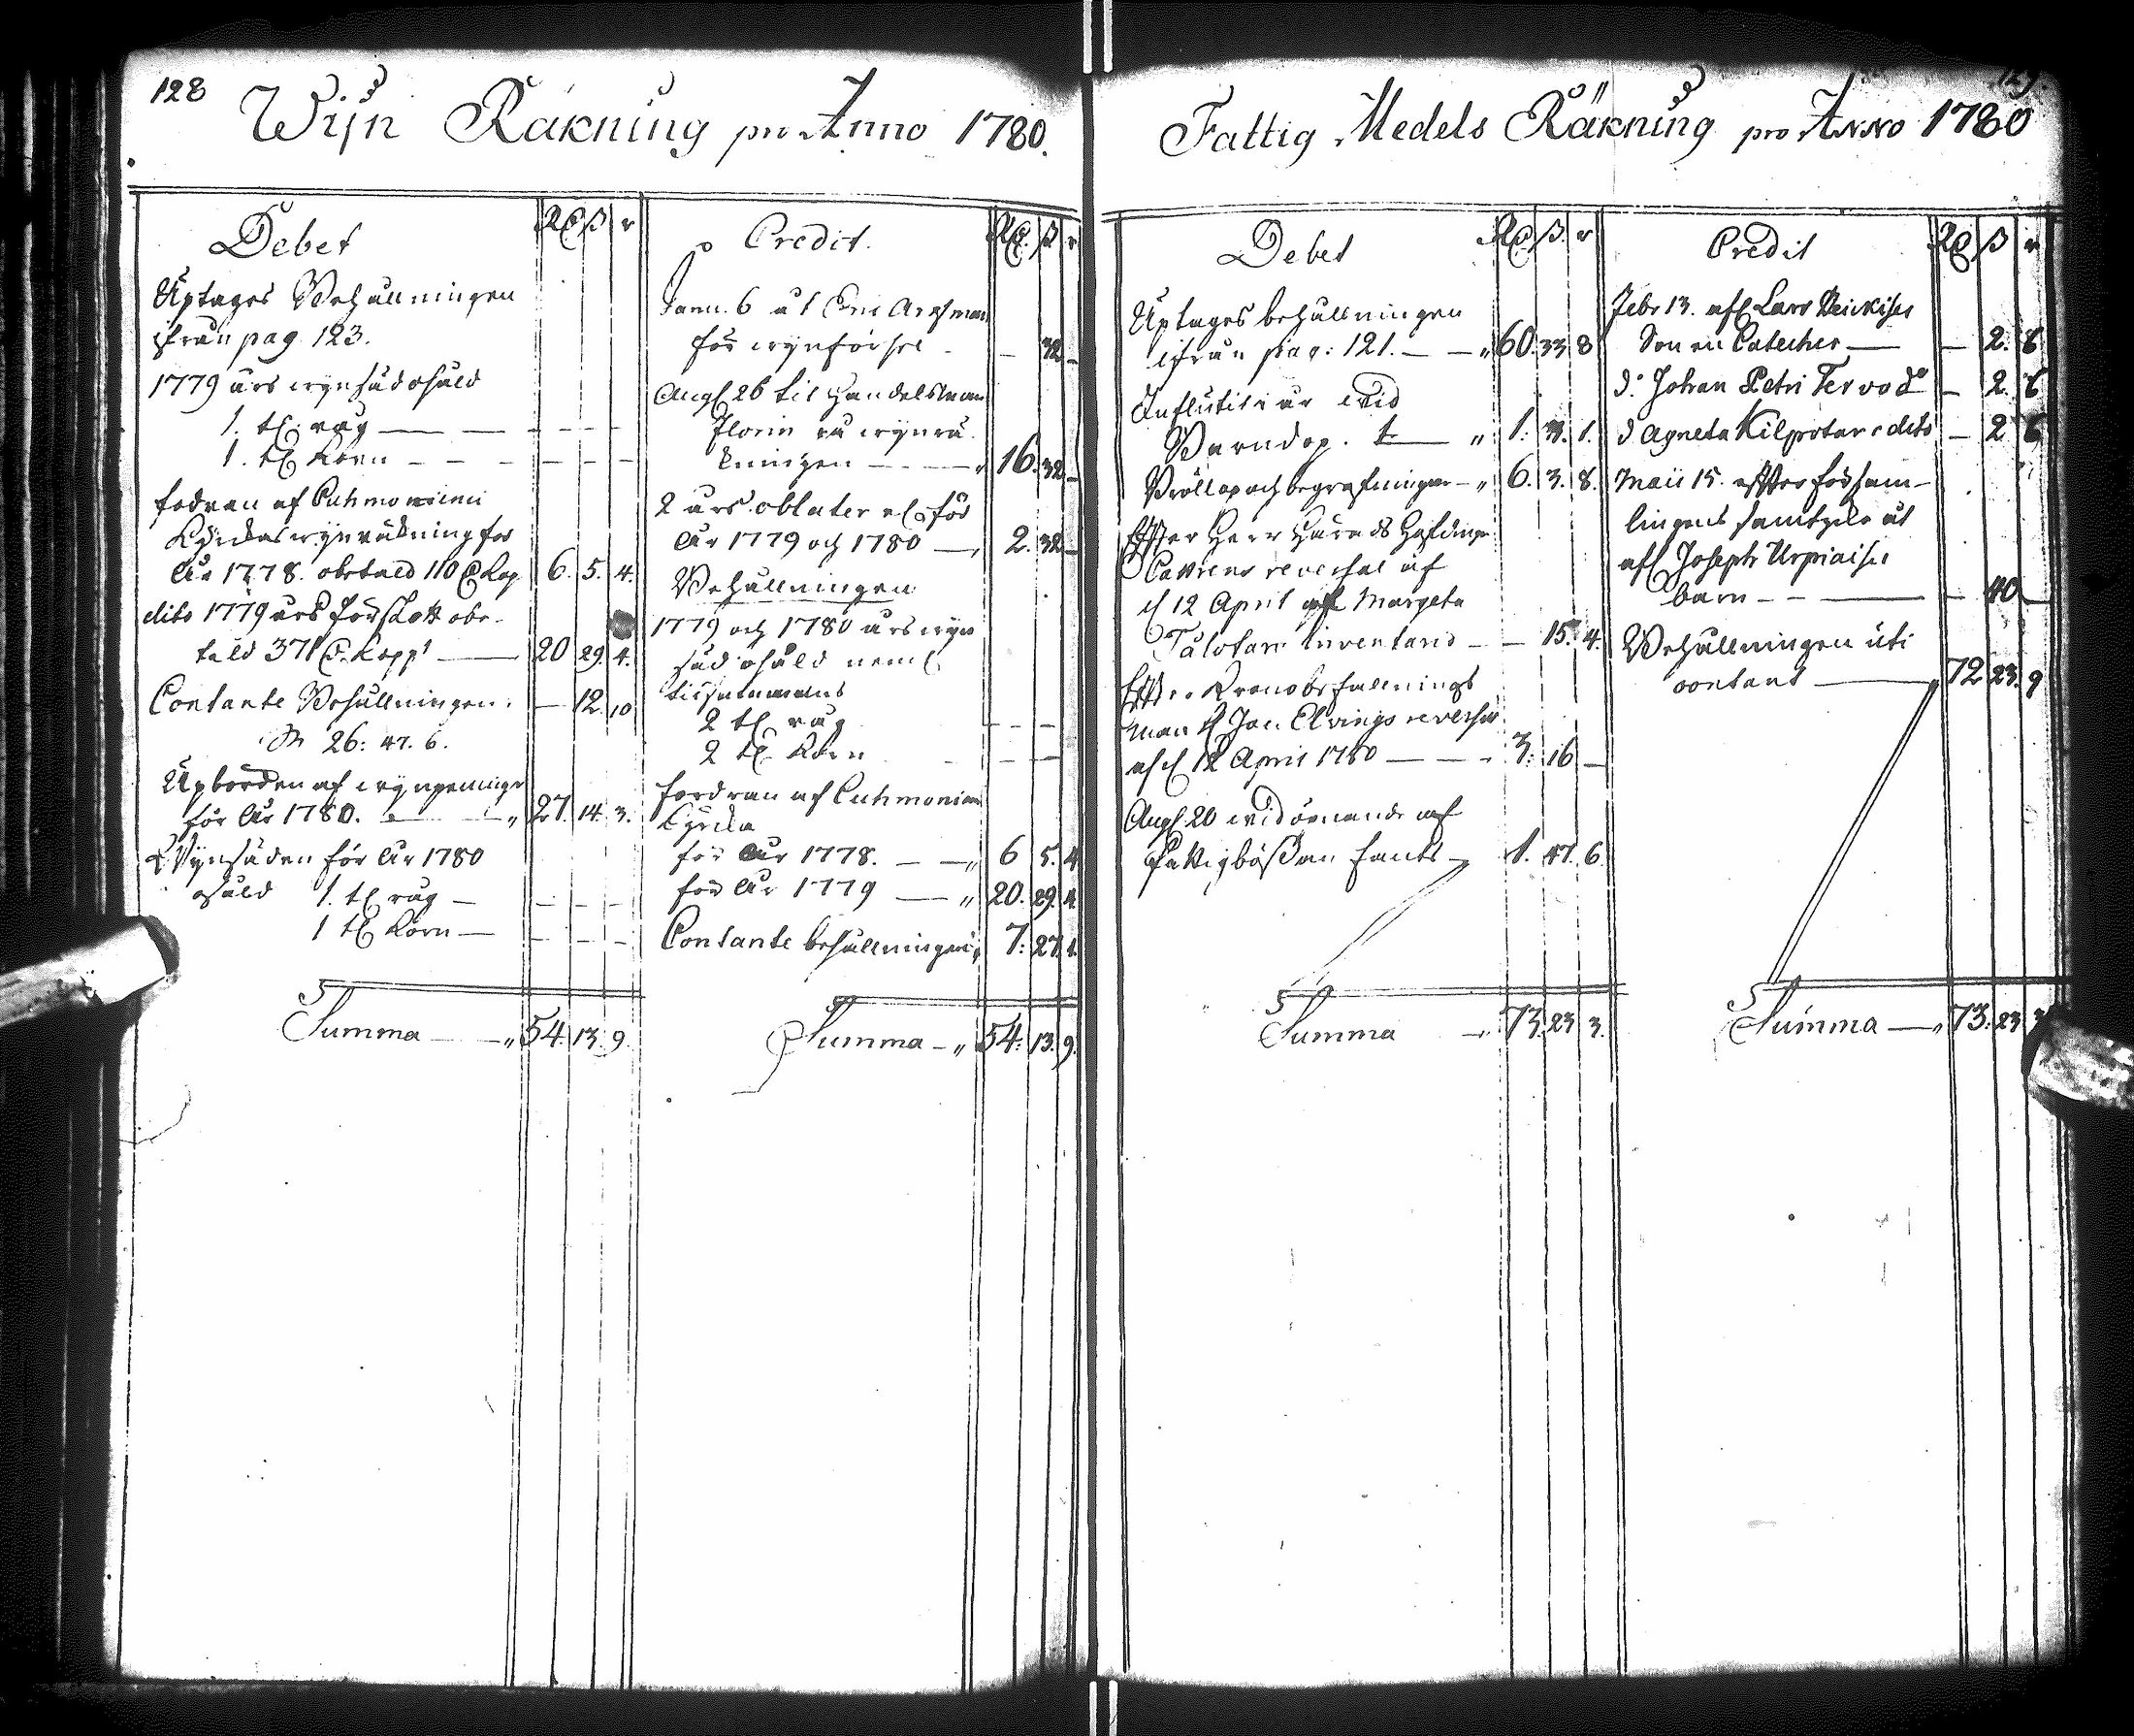 128
Wijn Räkning pro Anno 1780.
Debet Rd ß r
Uptages Behållningen
ifrån pag 123.
1779 års wijnsäd osåld
1. t. råg — — — —
1. t. Korn — — — —
fodran af Cuhmoniemi
Kyrckas wijnräkning för
År 1778. obetald 110 Kop 6. 5. 4.
dito 1779 års förskott obe-
tald 371 Kopp 20 29. 4.
Contante Behållningen. — 12. 10
26: 47. 6.
Upborden af wijnpenningr
för År 1780. 27. 14. 3.
Wijnsäden för År 1780
osåld 1. t. råg — — — —
1 t. Korn — — — —
Summa — 54. 13. 9.
Credit. Rd. ß r
Janu. 6 åt
för wijnförsel — 32 —
Aug. 26 til Handelsman
Florin på wijnrä-
kningen 16. 32 —
2 års oblater för
År 1779 och 1780 — 2. 32 —
Behållningen
1779 och 1780 års wijn
säd osåld neml.
tilsammans
2 t. råg — — —
2 t. Korn — — —
fordran af Cuhmoniemi
Kyrcka
för År 1778. — 6 5. 4
för År 1779 — 20. 29. 4.
Contante behållningen 7: 27. 1.
Summa — 54. 13. 9.
Fattig Medels Räkning pro Anno 1780
Debet Rd ß. r
Uptages behållningen
ifrån pag: 121. — 60. 33 8
Influtit i år wid
Barndop. — 1: 3. 1.
Bröllop och begrafningar — 6. 3. 8.
Efter Herr Härads Höfdinge
reversal af
d 12 April af Margeta
inventario — — 15. 4.
Efter Kronobefallnings
man Jan Elvings reversal
af d 12 April 1780 — 3: 16 —
Aug. 20 wid öpnande af
Fattigbößan fants 1. 47. 6.
Summa — 73. 23 3.
Credit Rd ß r
Febr 13. Lars
Son en Cateches — — 2. 8
d:o Johan Petri Tervo d:o — 2. 6
d Agneta Kilpotar dito — 2 6
Maii 15. efter försam-
lingens samtycke åt
Joseph Urpiaises
barn — — 40 —
Behållningen uti
contant — 72 23. 9
Summa — 73. 23 3